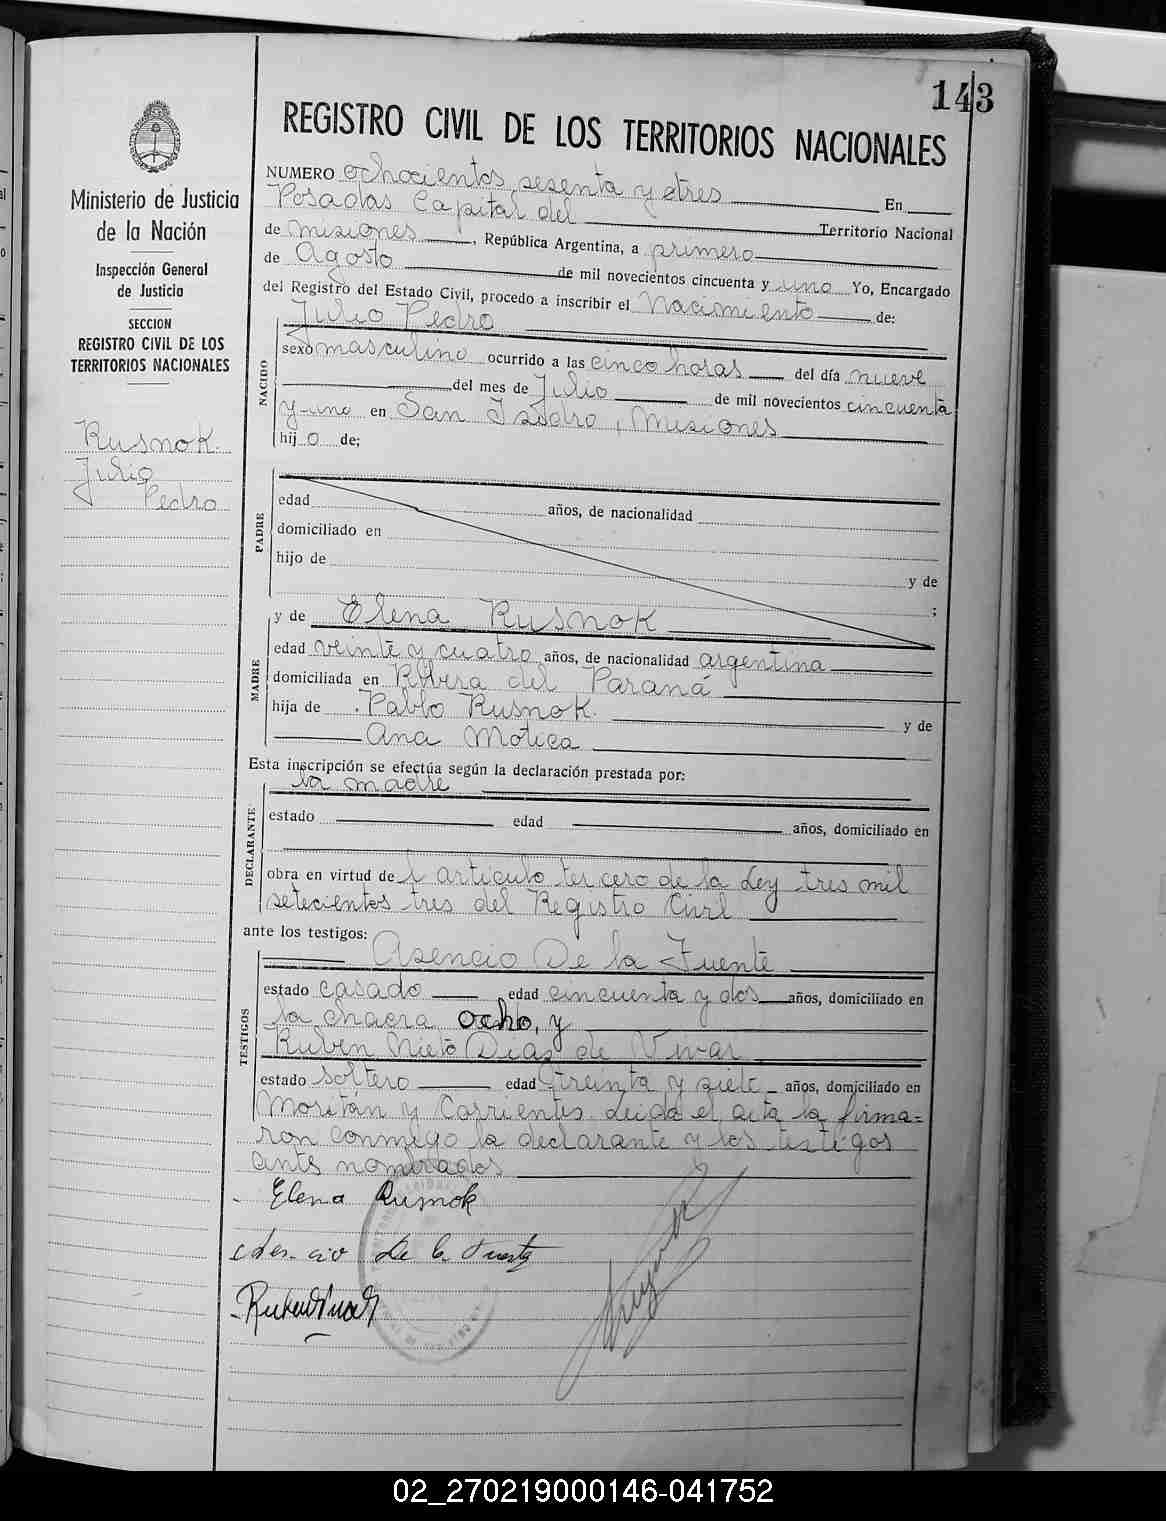 143
REGISTRO CIVIL DE LOS TERRITORIOS NACIONALES
Ministerio de Justicia
de la Nación
Inspección General
de Justicia
SECCION
REGISTRO CIVIL DE LOS
TERRITORIOS NACIONALES
Rusnok
Julio
Pedro
NUMERO ochocientos sesenta y tres En
Posadas Capital del Territorio Nacional
de Misiones, República Argentina, a primero
de Agosto de mil novecientos cincuenta y uno Yo, Encargado
del Registro del Estado Civil, procedo a inscribir el Nacimiento de:
NACIDO
Julio Pedro
sexo masculino ocurrido a las cinco horas del día nueve
del mes de Julio de mil novecientos cincuenta
y uno en San Isidro, Misiones
hijo de;
PADRE
edad años, de nacionalidad
domiciliado en
hijo de y de
;
y de Elena Rusnok
MADRE
edad veinte y cuatro años, de nacionalidad argentina
domiciliada en Ribera del Paraná
hija de Pablo Rusnok y de
Ana Motica
Esta inscripción se efectúa según la declaración prestada por:
la madre
DECLARANTE
estado edad años, domiciliado en
obra en virtud del artículo tercero de la Ley tres mil
setecientos tres del Registro Civil
ante los testigos:
Asencio De la Fuente
TESTIGOS
estado casado edad cincuenta y dos años, domiciliado en
la chacra ocho, y
Ruben Nieto Dias de Vivar
estado soltero edad treinta y siete años, domiciliado en
Moritán y Corrientes. Leida el acta la firma=
ron conmigo la declarante y los testigos
ants nombrados
Elena Rusnok
Asencio De la Fuente
02_270219000146-041752